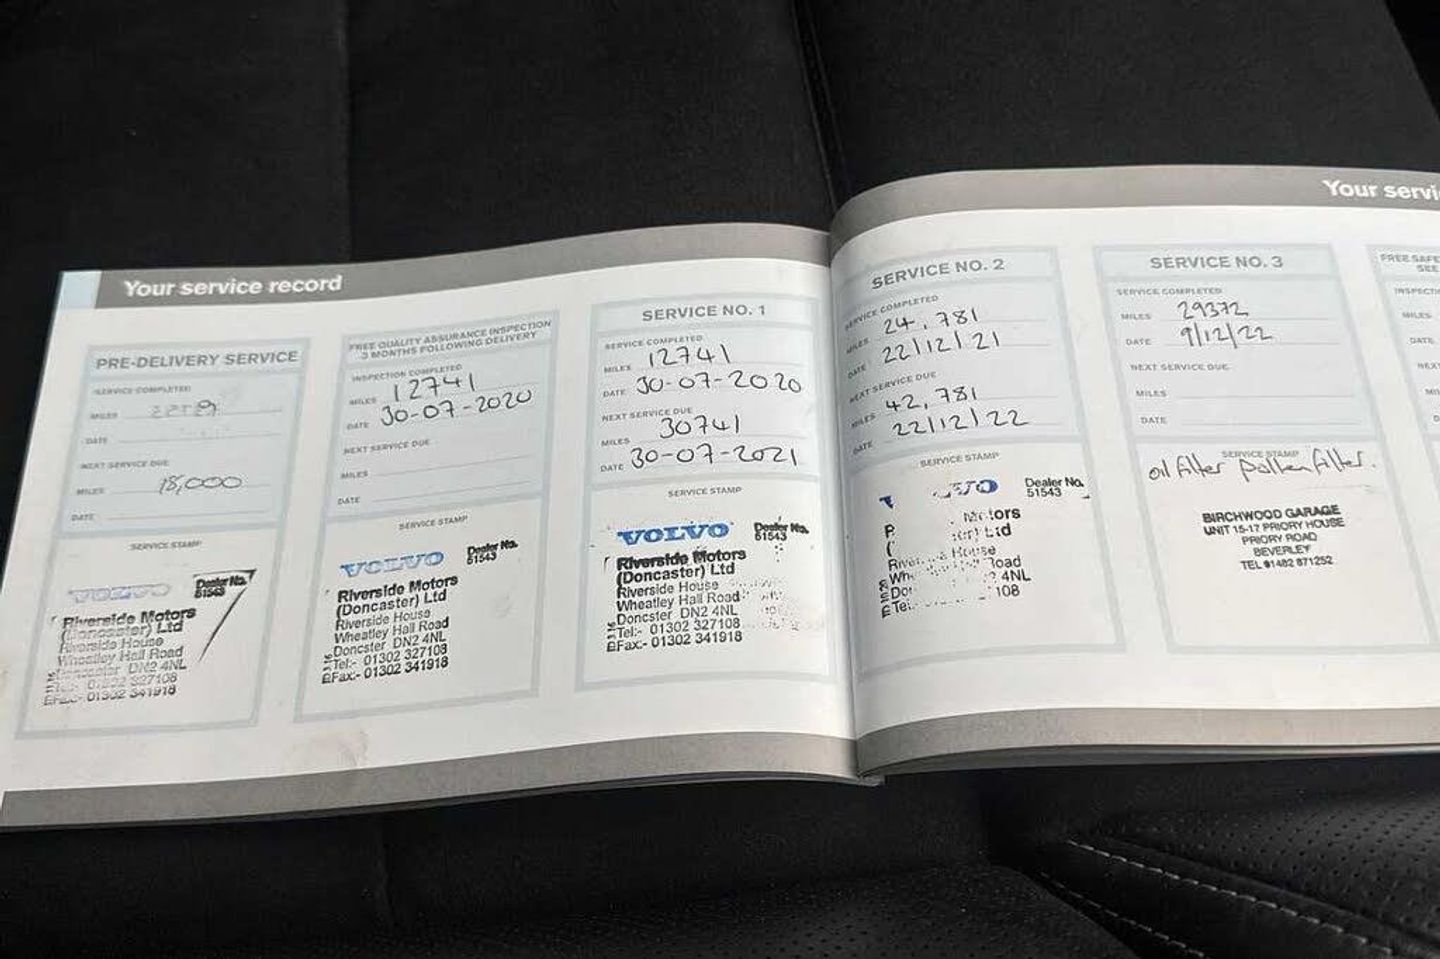 Your service record
PRE-DELIVERY SERVICE
SERVICE COMPLETED
MILES
DATE
NEXT SERVICE DUE
MILES 18,000
DATE
SERVICE STAMP
VOLVO Dealer No.
51543
Riverside Motors
(Doncaster) Ltd
Riverside House
Wheatley Hall Road
Doncster DN2 4NL
Tel:- 01302 327108
Fax:- 01302 341918
FREE QUALITY ASSURANCE INSPECTION
3 MONTHS FOLLOWING DELIVERY
INSPECTION COMPLETED
MILES 12741
DATE 30-07-2020
NEXT SERVICE DUE
MILES
DATE
SERVICE STAMP
VOLVO Dealer No.
51543
Riverside Motors
(Doncaster) Ltd
Riverside House
Wheatley Hall Road
Doncster DN2 4NL
Tel:- 01302 327108
Fax:- 01302 341918
SERVICE NO. 1
SERVICE COMPLETED
MILES 12741
DATE 30-07-2020
NEXT SERVICE DUE
MILES 30741
DATE 30-07-2021
SERVICE STAMP
VOLVO Dealer No.
51543
Riverside Motors
(Doncaster) Ltd
Riverside House
Wheatley Hall Road
Doncster DN2 4NL
Tel:- 01302 327108
Fax:- 01302 341918
Your servic
SERVICE NO. 2
SERVICE COMPLETED
MILES 24,781
DATE 22/12/21
NEXT SERVICE DUE
MILES 42,781
DATE 22/12/22
SERVICE STAMP
Dealer No.
51543
Motors
Ltd
House
Road
4NL
Tel: 108
SERVICE NO. 3
SERVICE COMPLETED
MILES 29372
DATE 9/12/22
NEXT SERVICE DUE
MILES
DATE
SERVICE STAMP
oil filter pollen filter.
BIRCHWOOD GARAGE
UNIT 15-17 PRIORY HOUSE
PRIORY ROAD
BEVERLEY
TEL 01482 871252
FREE SAFE
SEE
INSPECTI
MILES
DATE
NEXT
MI
DA